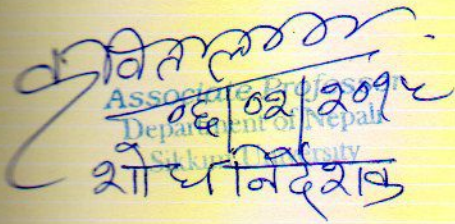 कविता लामा
Associate Professor
०६/०२/२०१५
Department of Nepali
Sikkim University
शोध निर्देशक